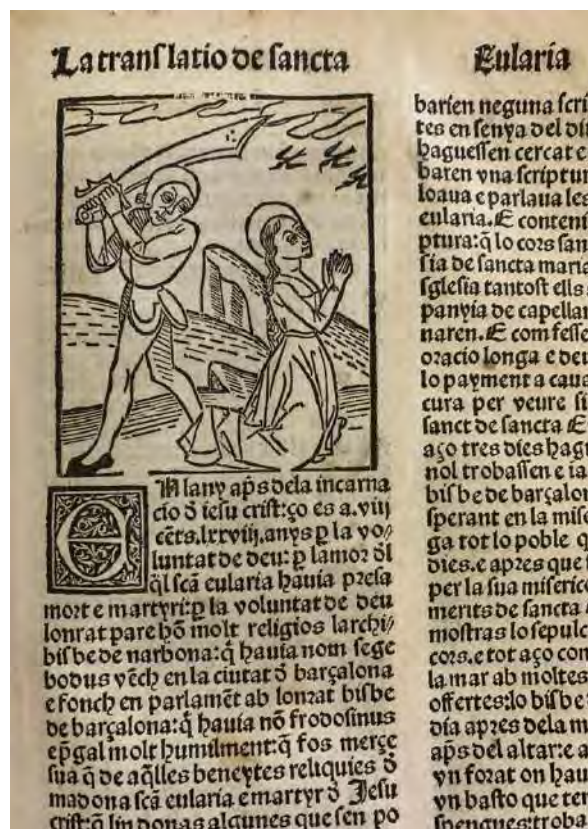 La tranſlatio de ſancta
Eularia
EN lany ap̃s dela incarna
cio d̃ ieſu criſt: ço es a. viij
cẽts. lxxviij. anys ꝑ la vo⸗
luntat de deu: ꝑ lamor d̃l
q̃l ſcã eularia hauia preſa
mort e martyri: ꝑ la voluntat de deu
lonrat pare hõ molt religios larchi⸗
biſbe de narbona: q̃ hauia nom ſege
bodus vẽch en la ciutat d̃ barçalona
e fonch en parlamẽt ab lonrat biſbe
de barçalona: q̃ hauia nõ frodoſinus
ep̃gal molt humilment: q̃ fos merçe
ſua q̃ de aq̃lles beneytes reliquies d̃
madona ſcã eularia e martyr d̃ Jeſu
criſt: q̃ lin donas algunes que ſen po
barien neguna ſcri
tes en ſenya del di
hagueſſen cercat e
baren vna ſcriptur
loaua e parlaua les
eularia. E conteni
ptura: q̃ lo cors ſan
ſia de ſancta maria
ſgleſia tantoſt ells
panyia de capellan
naren. E com feſſe
oracio longa e deu
lo payment a caua
cura per veure ſi
ſanct de ſancta E
aço tres dies hag
nol trobaſſen e ia
biſbe de barçalo
ſperant en la miſe
ga tot lo poble q
dies. e apres que
per la ſua miſeric
merits de ſancta
moſtras lo ſepulc
cors. e tot aço con
la mar ab moltes
offertes: lo biſbe
dia apres dela m
ap̃s del altar: e a
vn forat on hau
vn baſto que ten
ſpengues: troba